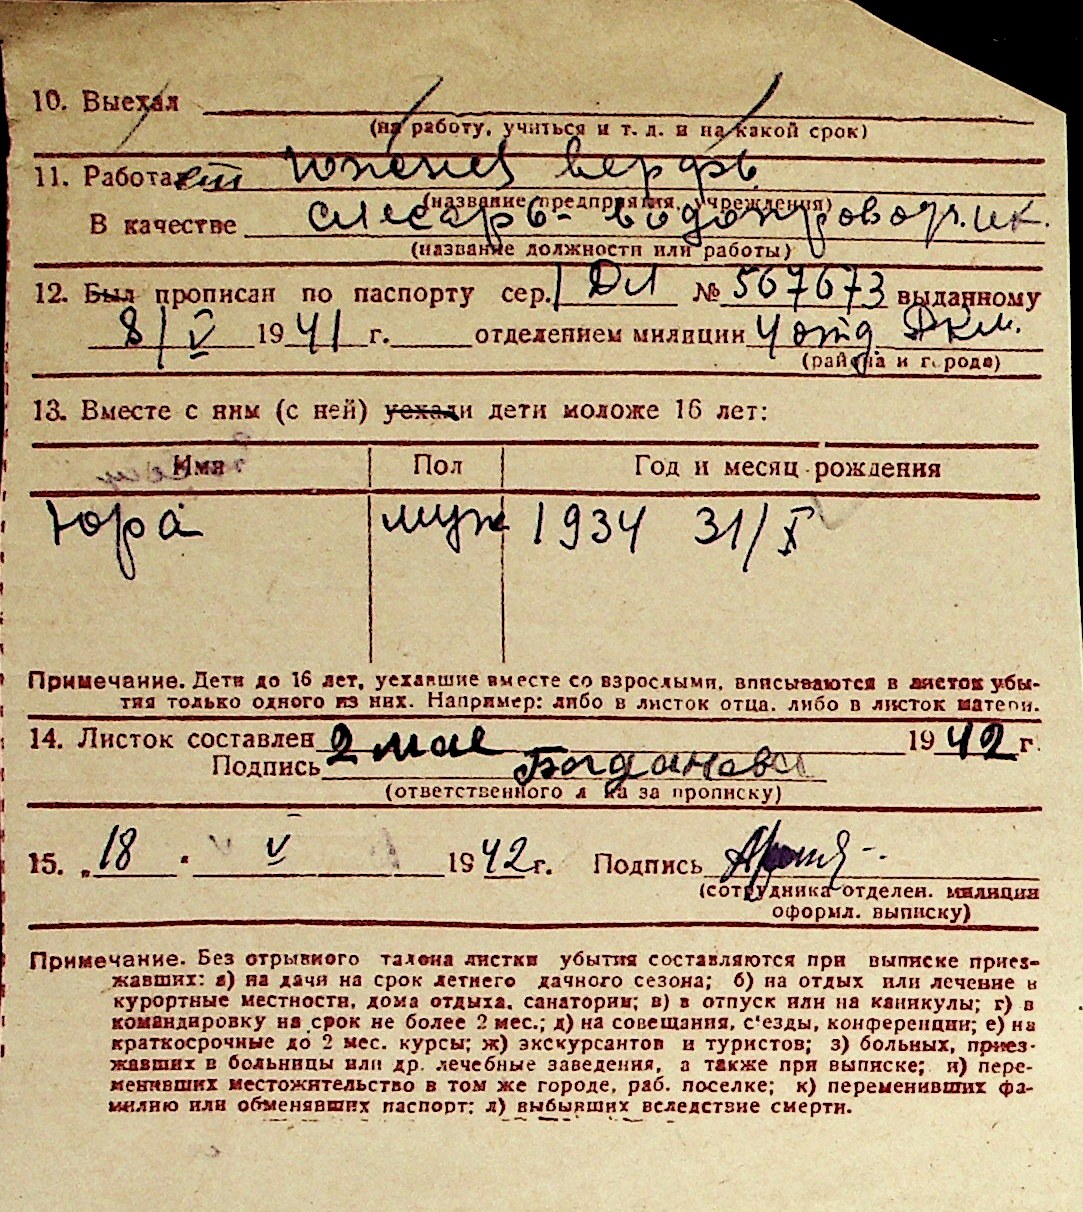 10. Выехал
(на работу, учиться и т. д. и на какой срок)
11. Работает Южная верфь
(название предприятия, учреждения)
В качестве слесарь-водопроводчик.
(название должности или работы)
12. Был прописан по паспорту сер. ДЛ № 567673 выданному
8/V 1941 г. отделением милиции 4 отд Лкм.
(района и города)
13. Вместе с ним (с ней) уехали дети моложе 16 лет:
Имя Пол Год и месяц рождения
Юра муж 1934 31/X
Примечание. Дети до 16 лет, уехавшие вместе со взрослыми, вписываются в листок убы-
тия только одного из них. Например: либо в листок отца, либо в листок матери.
14. Листок составлен 2 мае 1942 г.
Подпись Богданова
(ответственного л на за прописку)
15. „18 " V 1942 г. Подпись
(сотрудника отделен. милиции
оформл. выписку)
Примечание. Без отрывного талона листки убытия составляются при выписке приез-
жавших: а) на дачи на срок летнего дачного сезона; б) на отдых или лечение в
курортные местности, дома отдыха, санатории; в) в отпуск или на каникулы; г) в
командировку на срок не более 2 мес.; д) на совещания, с'езды, конференции; е) на
краткосрочные до 2 мес. курсы; ж) экскурсантов и туристов; з) больных, приез-
жавших в больницы или др. лечебные заведения, а также при выписке; и) пере-
менивших местожительство в том же городе, раб. поселке; к) переменивших фа-
милию или обменявших паспорт; л) выбывших вследствие смерти.